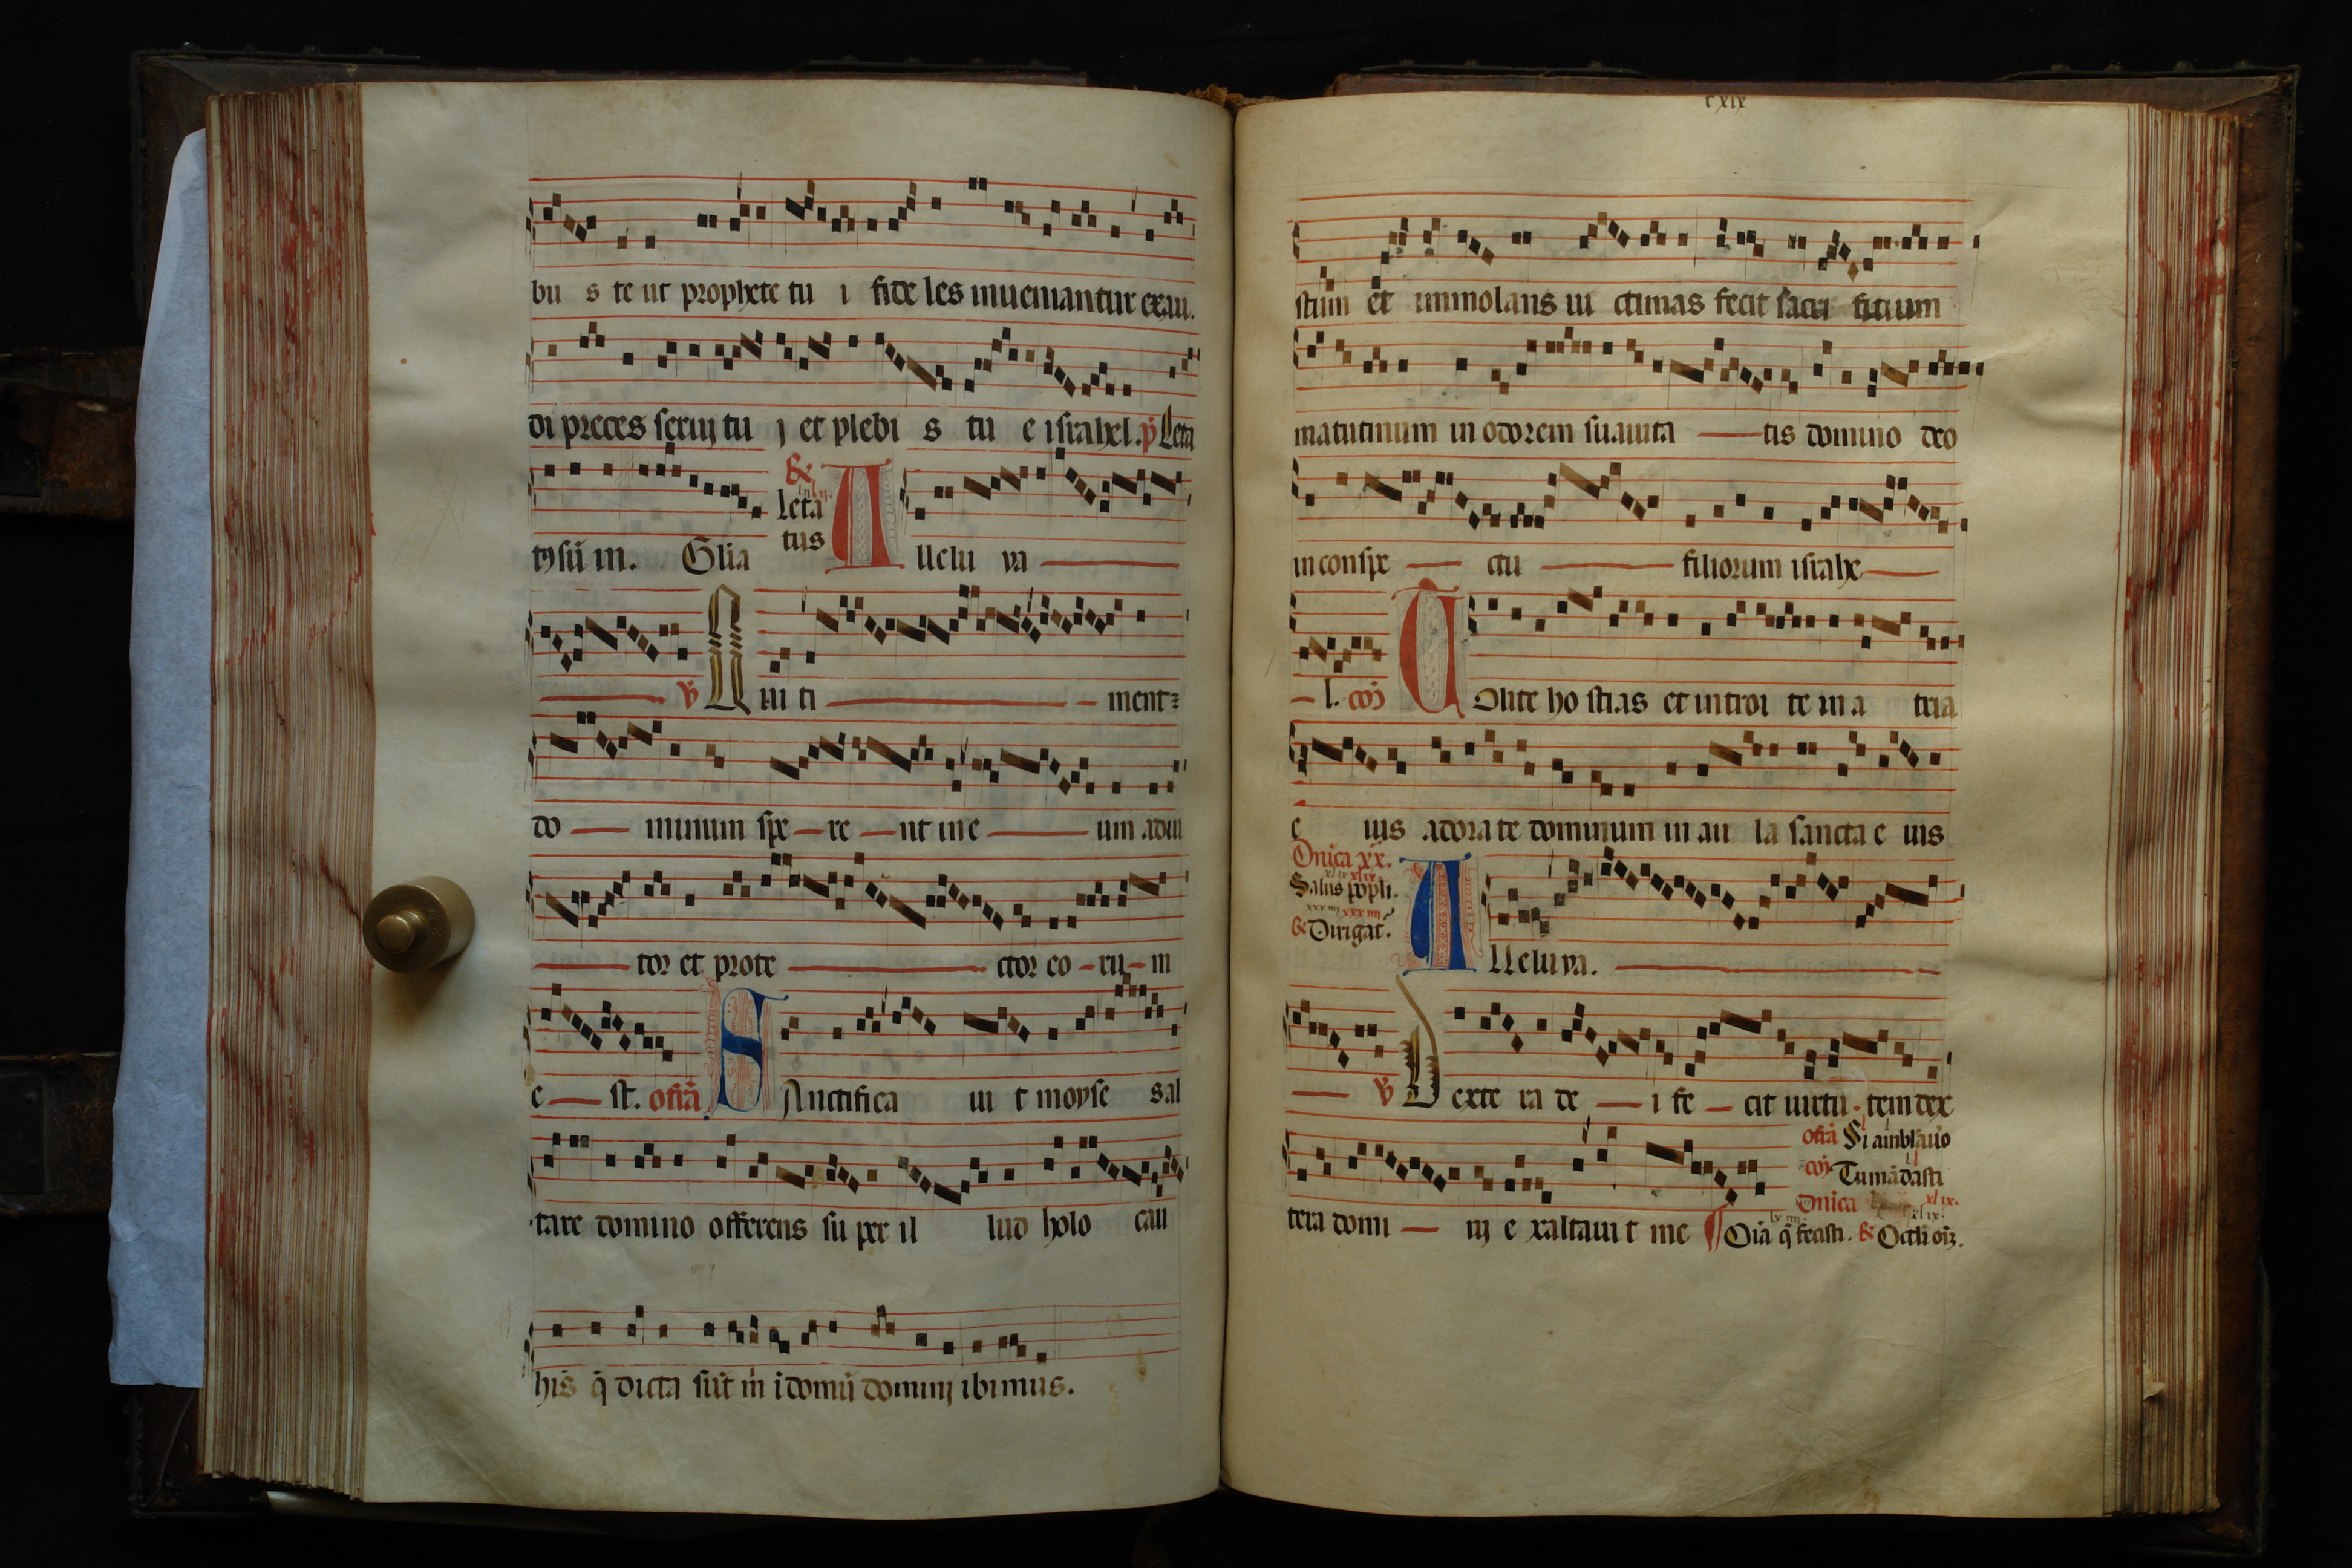 bu s te ut prophete tu i fide les inueniantur exau.
di preces serui tu i et plebi s tu e israhel. p̄ Leta
tꝯ sū in. Glia
&
Leta
tus
A lleluya
℣ Qui ti ment
do minum spe re nt in e um adiu
tor et prote ctor eo ru m
e st. ofrā SAnctifica ui t moyse sal
tare domino offerens su per il lud holo cau
his q̄ dicta sūt m̄ i domū domini ibimus.
cxix
stum et immolans ui ctimas fecit sacri ficium
matutinum in odorem suauita tis domino deo
in conspe ctu filiorum israhe
l. com TOllite ho stias et introi te in a tria
e ius adora te dominum in au la sancta e ius
Dnica xx.
xlix xlix
Salus popli.
xxxiiij xxxiiij
& Dirigat.
A lleluya.
℣ Dexte ra de i fe cit uirtu tem dex
tera domi ni e xaltaui t me
ofrā Si ambłauo
com Tu mādasti
Dnica xlix.
¶ Oīa q̄ fecisti. & Oculi oīz.